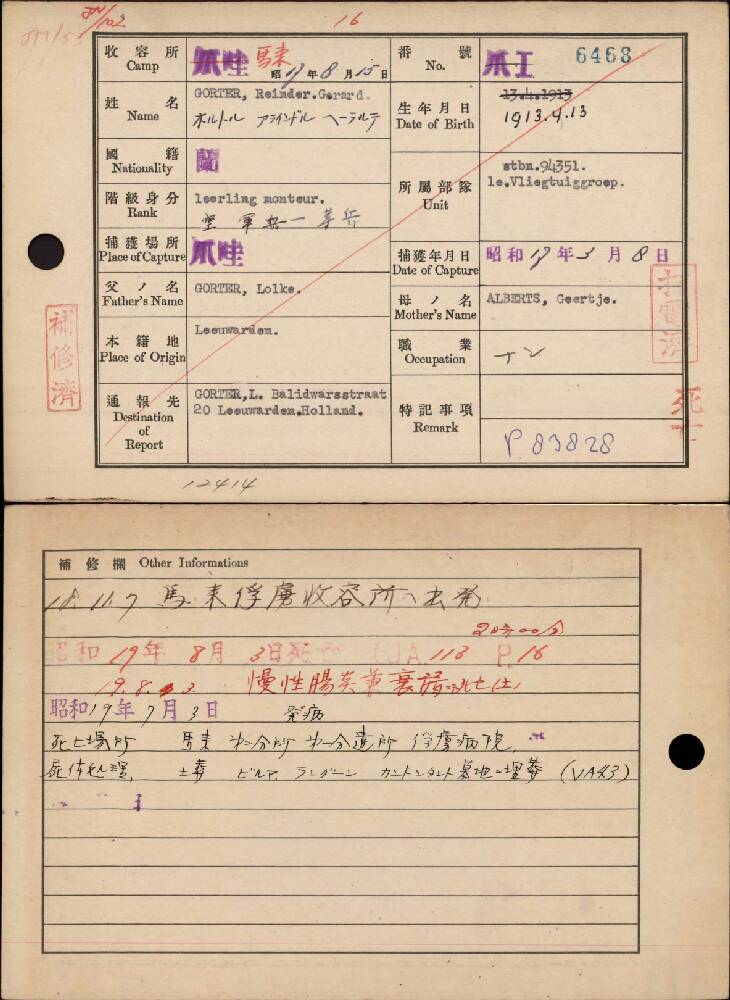 16
收容所 Camp 爪哇 馬来 昭17年8月15日
番號 No. 爪I 6468
姓名 Name GORTER, Reinder.Gerard.
生年月日 Date of Birth 13.4.1913
1913.4.13
國籍 Nationality 蘭
階級身分 Rank leerling monteur.
空軍兵一等兵
所屬部隊 Unit stbn.94351.
1e.Vliegtuiggroep.
捕獲場所 Place of Capture 爪哇
捕獲年月日 Date of Capture 昭和17年3月8日
父ノ名 Father's Name GORTER, Lolke.
母ノ名 Mother's Name ALBERTS, Geertje.
本籍地 Place of Origin Leeuwarden.
職業 Occupation ナシ
通報先 Destination of Report GORTER,L. Balidwarsstraat
20 Leeuwarden.Holland.
特記事項 Remark P.83828
補修濟
死亡
12414
補修欄 Other Informations
18.11.7 馬来俘虜收容所へ出発
昭和19年8月3日死亡 (JA.113 P.16
19.8.3. 慢性腸炎兼
昭和19年7月3日 発病
死亡場所 馬来 第二分所 第一分遣所 俘虜病院
死体処理 土葬 ビルマ 墓地ニ埋葬 (VA43)